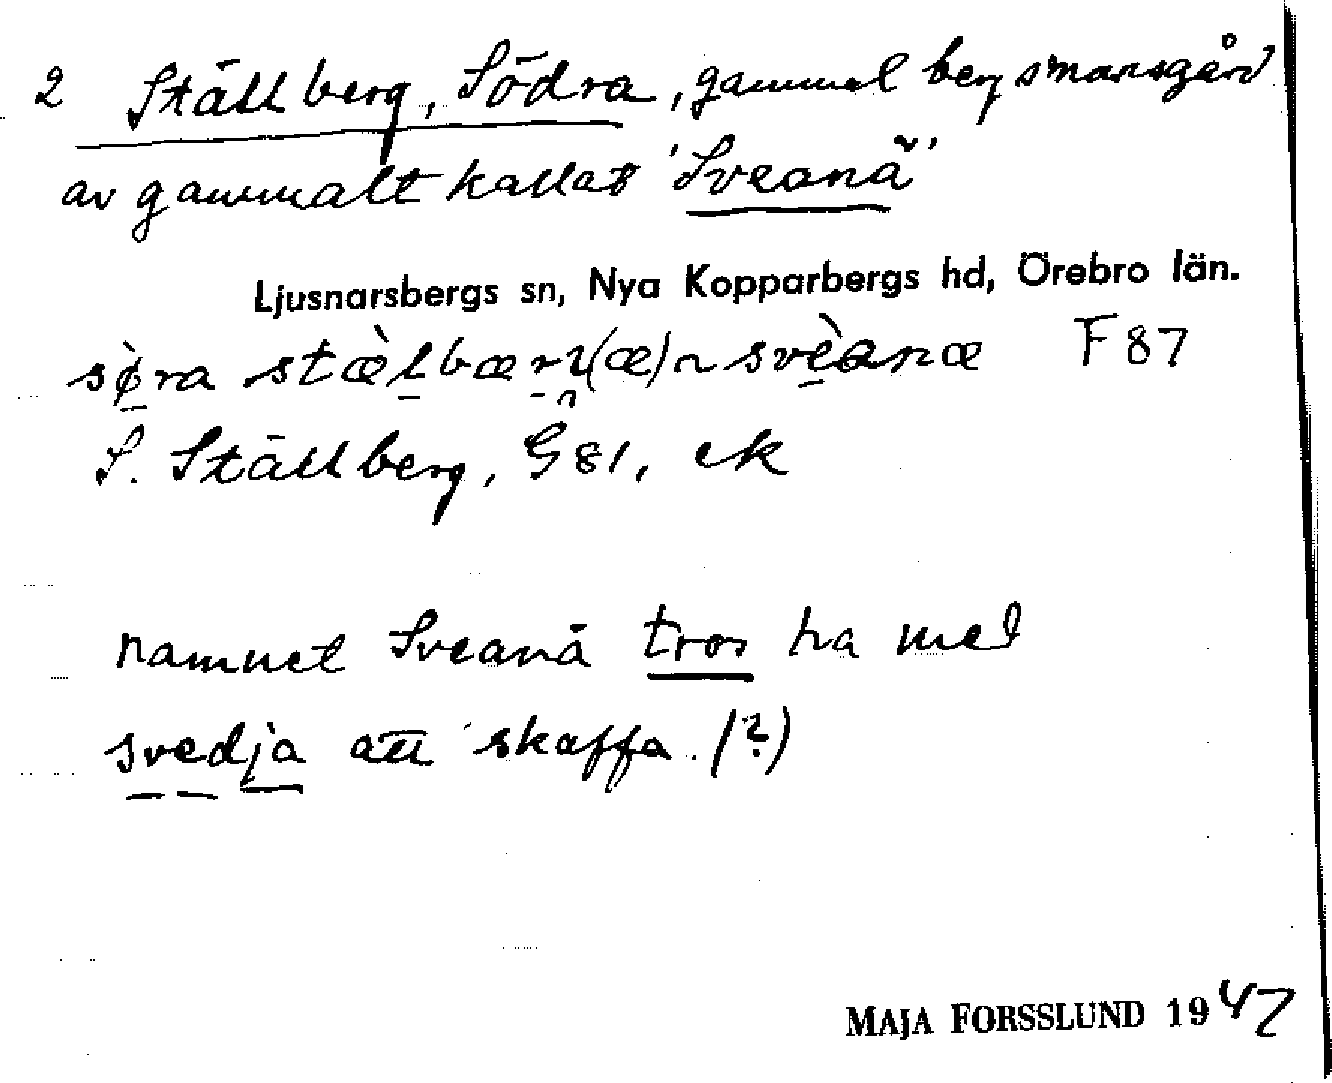 2 Ställberg, Södra, gammal bergsmansgård
av gammalt kallat 'Sveanä'
Ljusnarsbergs sn, Nya Kopparbergs hd, Örebro län.
F 87
S. Ställberg, G 81, ek
namnet Sveanä tros ha med
svedja att skaffa. (?)
MAJA FORSSLUND 1947